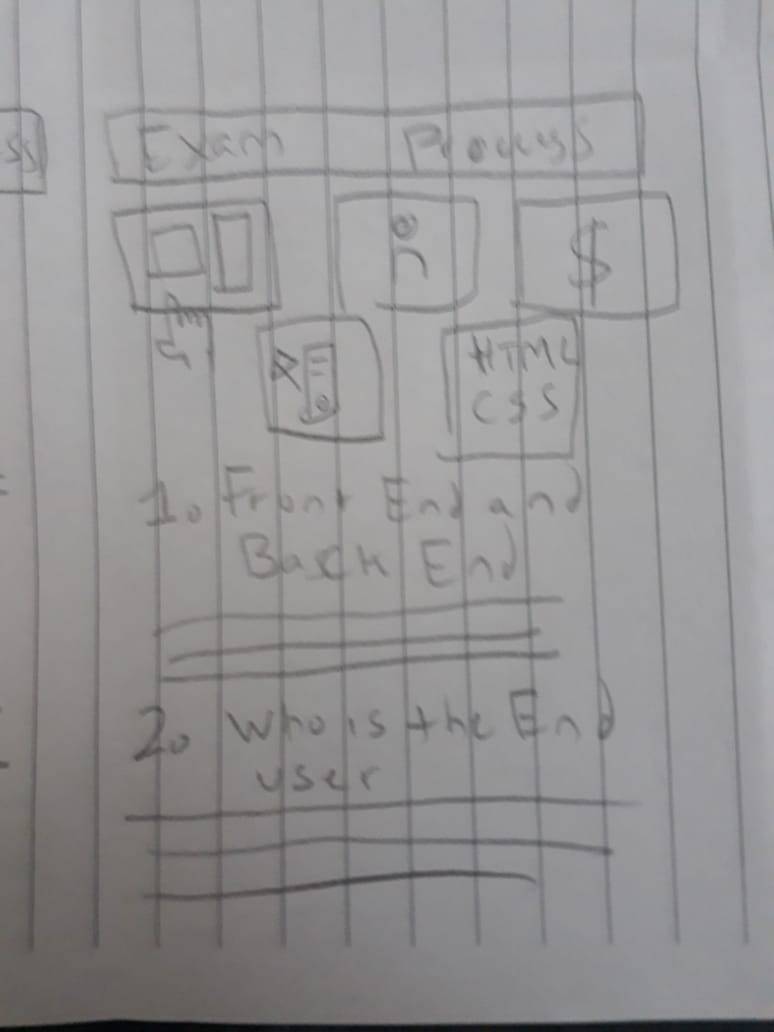 ss
Exam Process
$
HTML
CSS
1. Front End and
Back End
2. Who is the End
user